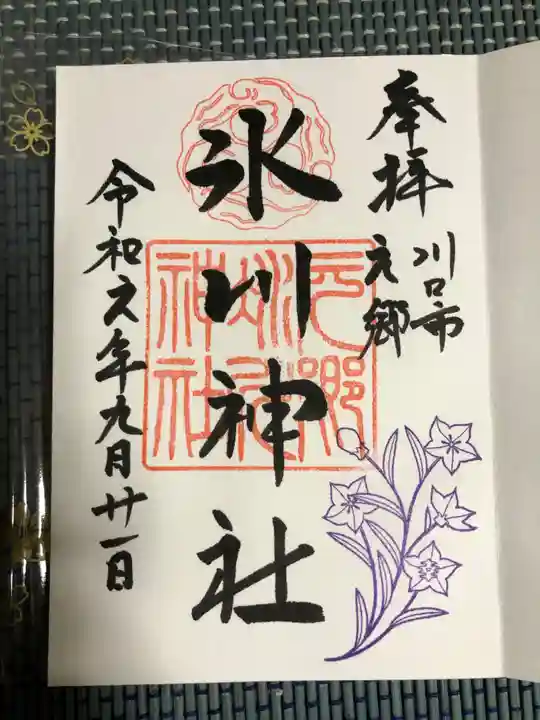 奉拝
川口市
元郷
氷川神社
元郷
氷川
神社
令和元年九月廿一日